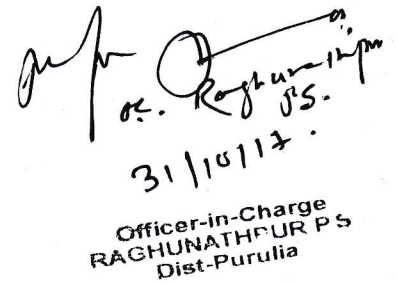 oc. Raghunathpur
PS.
31/10/17.
Officer-in-Charge
RAGHUNATHPUR PS
Dist-Purulia